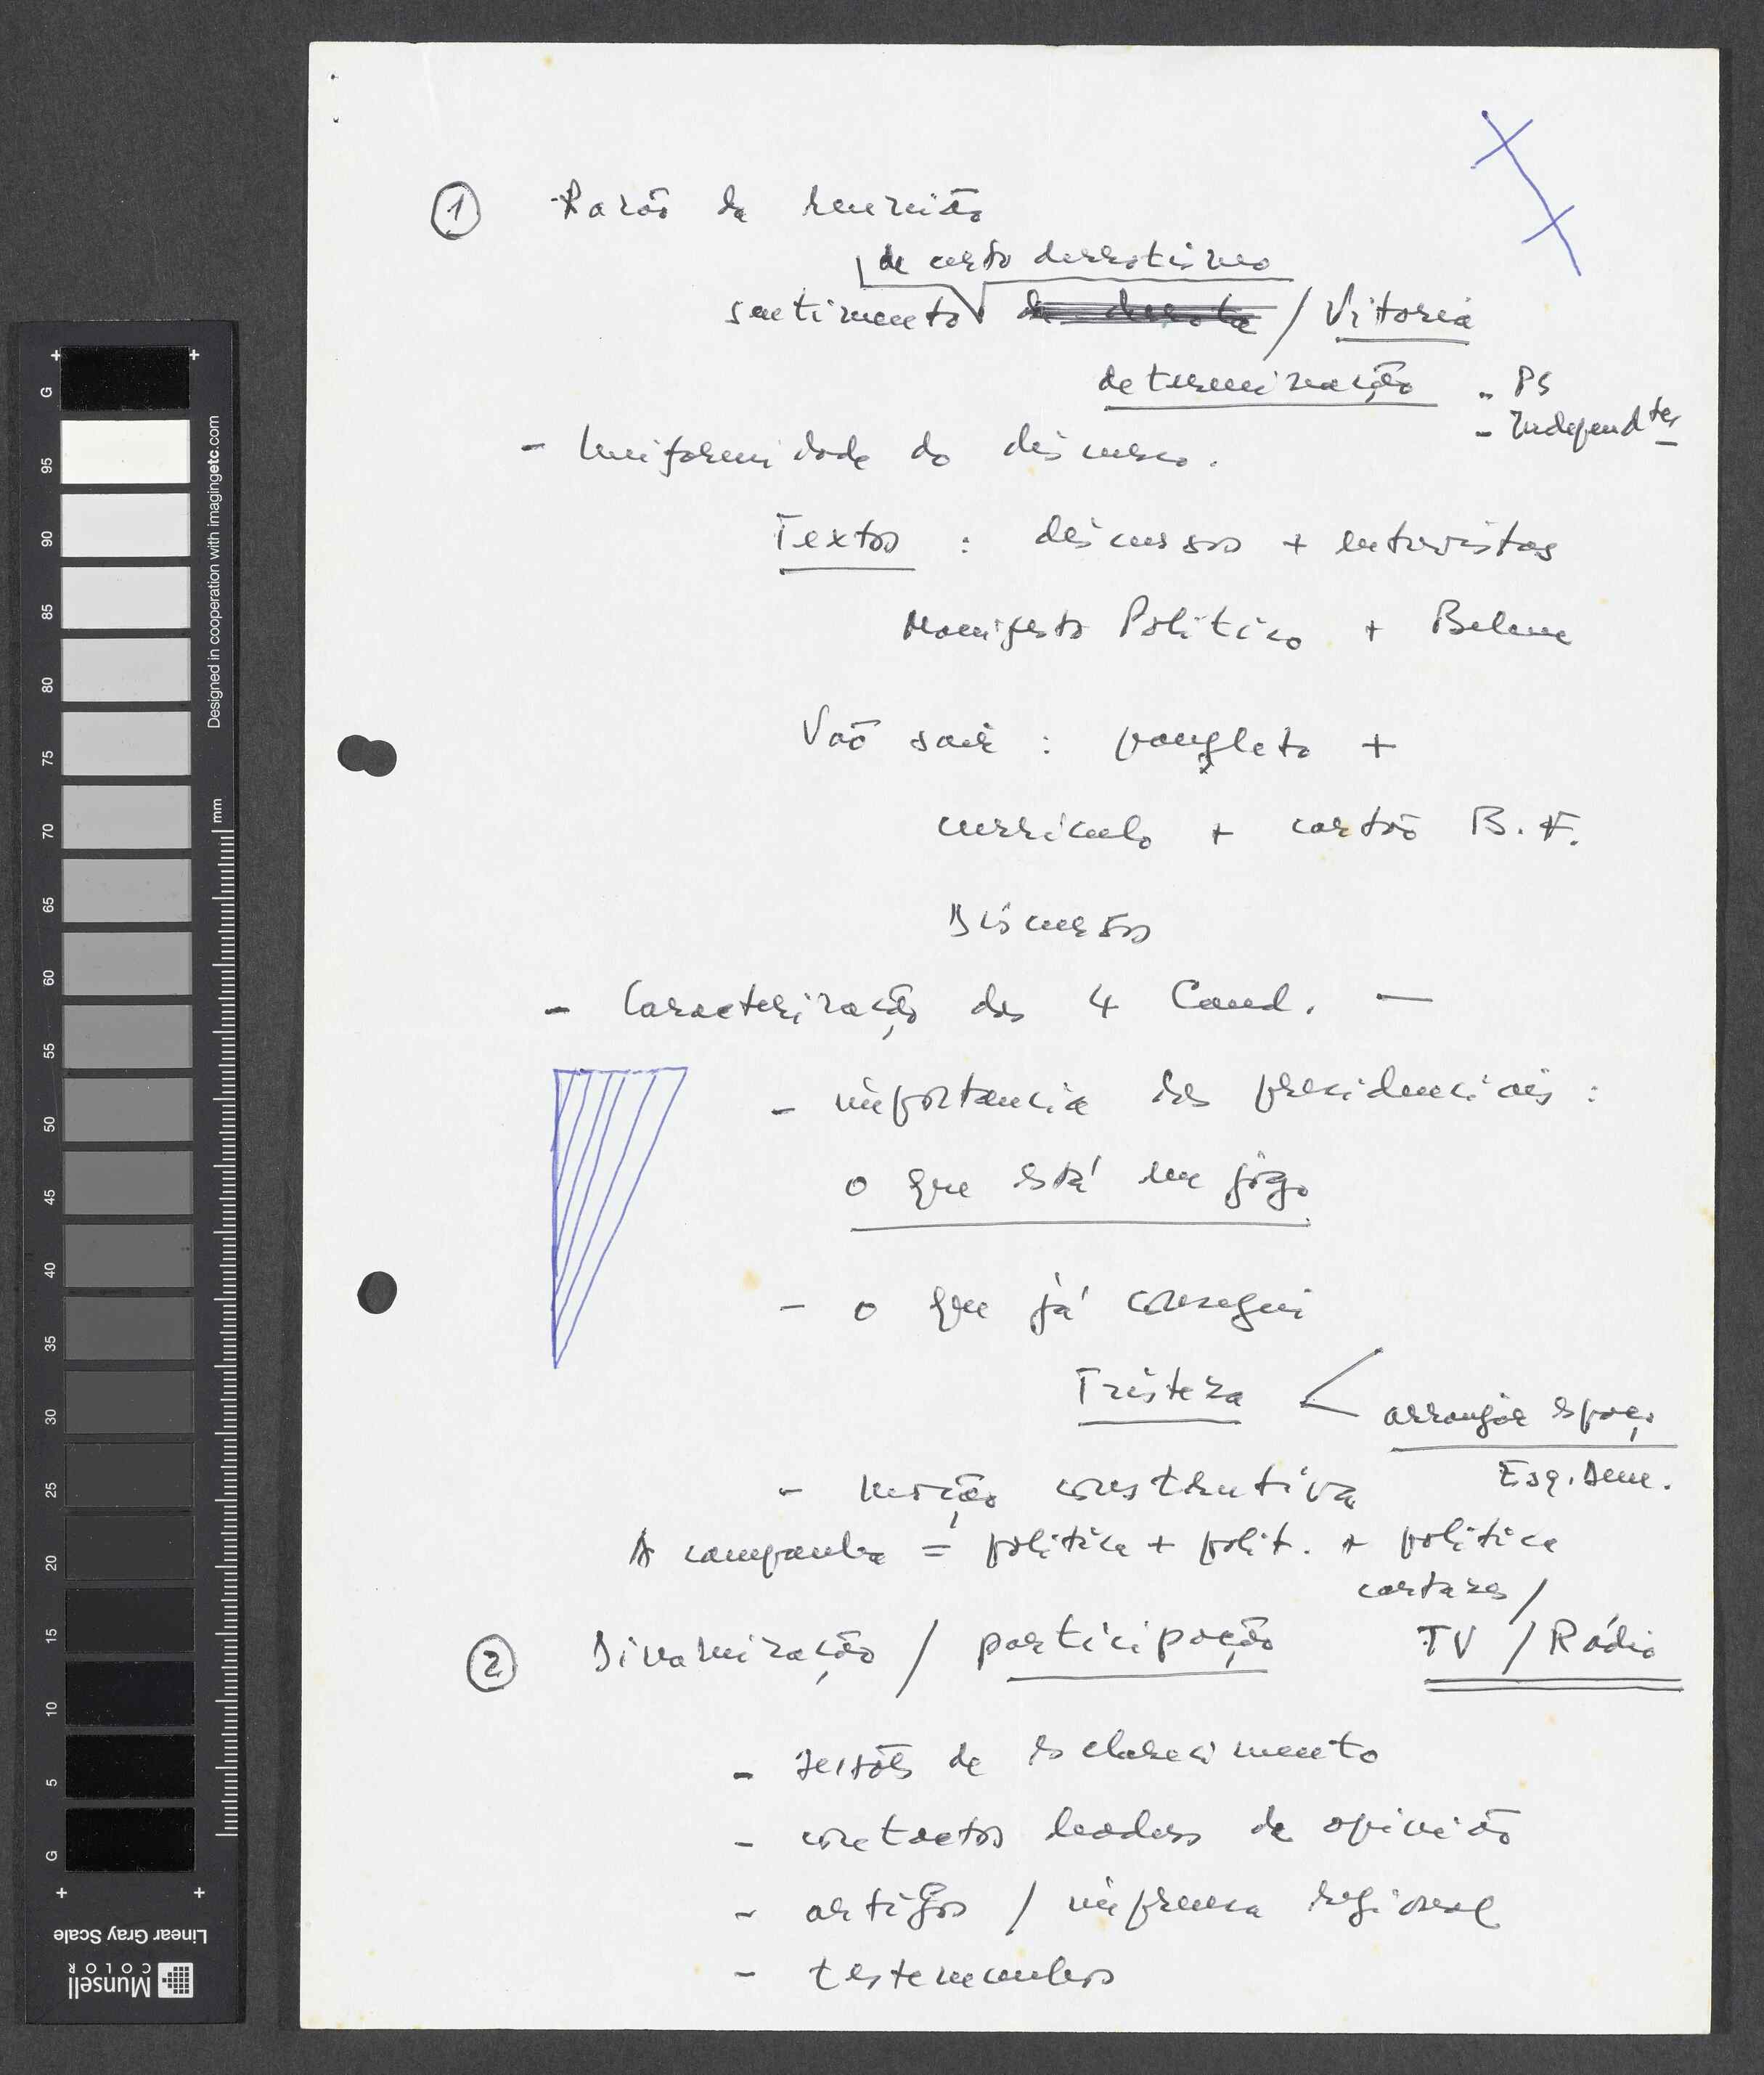 ① Razão da reunião
de certo derrotismo
sentimento da derrota / Vitória
determinação - PS
- Independtes
- Uniformidade do discurso.
Textos : discursos + entrevistas
Manifesto Político + Belem
Vão sair : panfleto +
curriculo + cartão B.F.
Discursos
- Caracterização dos 4 Cand. —
- importancia das presidenciais :
o que está em jogo
- o que já consegui
Tristeza < arranjar espaço
Esq. Dem.
- versão construtiva
A campanha = politica + polit. + politica
cartazes /
② Dinamização / participação TV / Rádio
- sessões de esclarecimento
- contactos leaders de opinião
- artigos / imprensa regional
- testemunhos
G
95
90
85
80
75
70
65
60
55
50
45
40
35
30
25
20
15
10
5
G
mm
Designed in cooperation with imagingetc.com
Linear Gray Scale
Munsell
COLOR